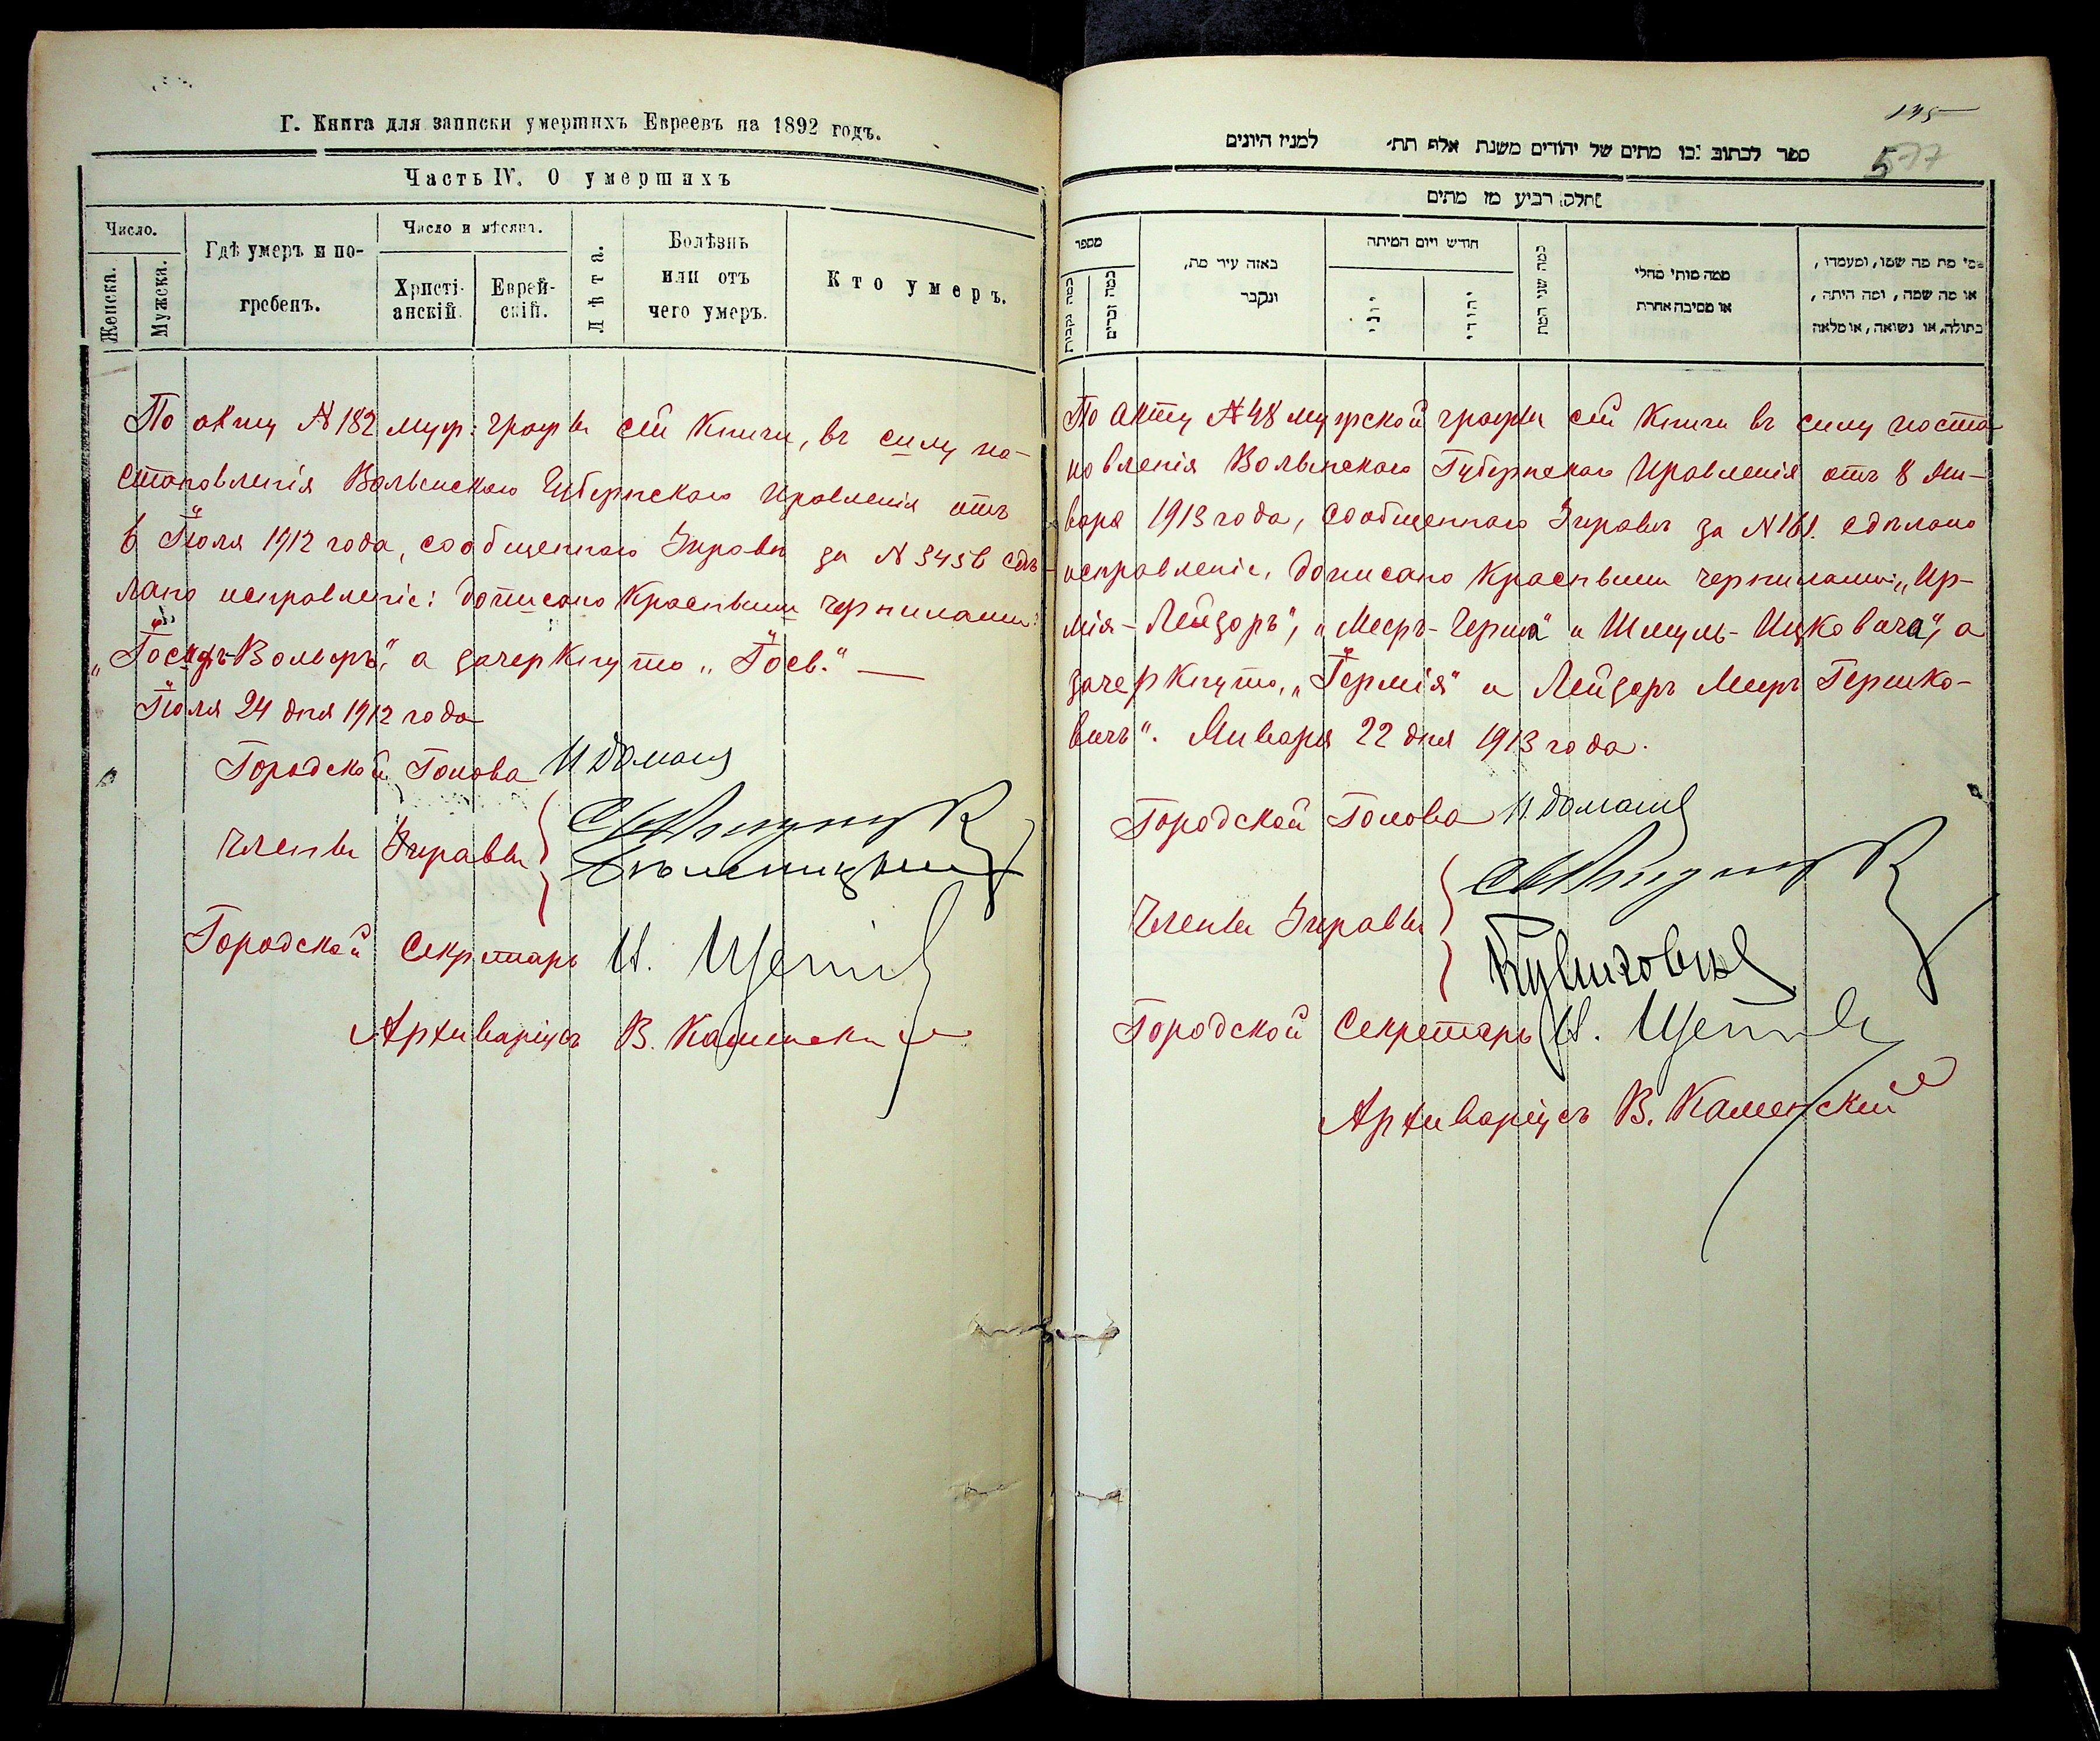 Г. Книга для записки умершихъ Евреевъ на 1892 годъ.
Часть IV. О умершихъ
Число.
Женска.
Мужска.
Гдѣ умеръ и по-
гребенъ.
Число и мѣсяцъ.
Христі-
анскій.
Еврей-
скій.
Лѣта.
Болѣзнь
или отъ
чего умеръ.
Кто умеръ.
По акту № 182 муж. графы сей книги, въ силу по-
становленія Волынскаго Губернскаго Правленія отъ
6 Іюля 1912 года, сообщеннаго Управѣ за № 3456 сдѣ-
лано исправленіе: дописано красными чернилами:
"Іосифъ-Вольфъ", а зачеркнуто "Іосъ."
Іюля 24 дня 1912 года
Городской Голова
Члены Управы
Городской Секретарь
Архиваріусъ В. Каменскій
145
577
ספר לכתוב בו מתים של יהודים משנת אלף תת׳ למנין היונים
חלק רביע מן מתים
מספר
כמה נקבות
כמה זכרים
באזה עיר מת,
ונקבר
חודש ויום המיתה
יוני
יהודי
כמה שני המת
ממה מותי מחלי
או מסיבה אחרת
מי מת מה שמו, ומעמדו,
או מה שמה, ומה היתה,
בתולה, או נשואה, או מלאה
По акту № 48 мужской графы сей книги въ силу поста-
новленія Волынскаго Губернскаго Правленія отъ 8 Ян-
варя 1913 года, сообщеннаго Управѣ за № 161. сдѣлано
исправленіе, дописано красными чернилами: "Ир-
мія-Лейзоръ", "Мееръ-Герша" и Шмуль-Ицковича", а
зачеркнуто, "Гермія" и Лейзоръ Мееръ Гершко-
вичъ". Января 22 дня 1913 года.
Городской Голова
Члены Управы
Городской Секретарь
Архиваріусъ В. Каменскій